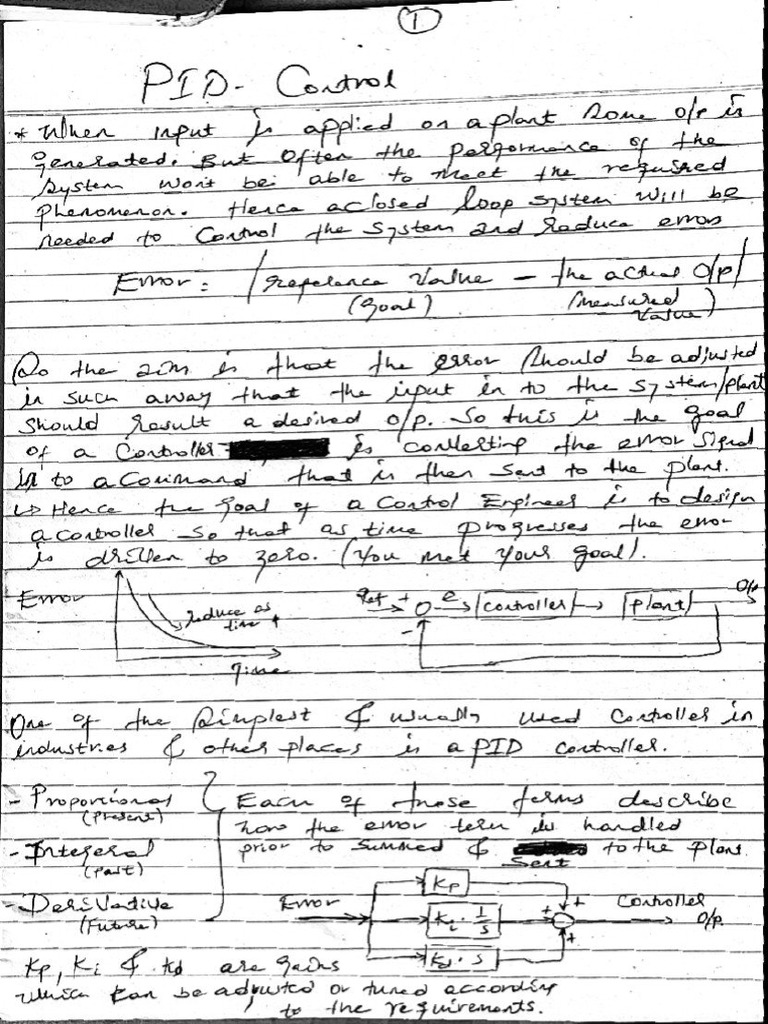 1
PID - Control
* When input is applied on a plant some o/p is
generated. But often the performance of the
system won't be able to meet the required
phenomenon. Hence a closed loop system will be
needed to control the system and reduce error
Error = | reference value - the actual o/p |
(goal) (measured
value)
So the aim is that the error should be adjusted
in such away that the input in to the system/plant
should result a desired o/p. So this is the goal
of a controller is converting the error signal
in to a command that is then sent to the plant.
↳ Hence the goal of a control Engineer is to design
a controller so that as time progresses the error
is driven to zero. (You met your goal).
Error
reduce as
time ↑
Time
Ref + e controller plant O/p
-
One of the simplest & usually used controller in
industries & other places is a PID controller.
- Proporcional
(Present)
- Integeral
(Past)
- Derivative
(Future)
Each of these terms describe
how the error term is handled
prior to summed & to the plant.
sent
Error
Kp
Ki . 1/s
Kd . s
+
+
+
Controller
O/p
Kp, Ki & Kd are gains
which can be adjusted or tuned according
to the requirements.